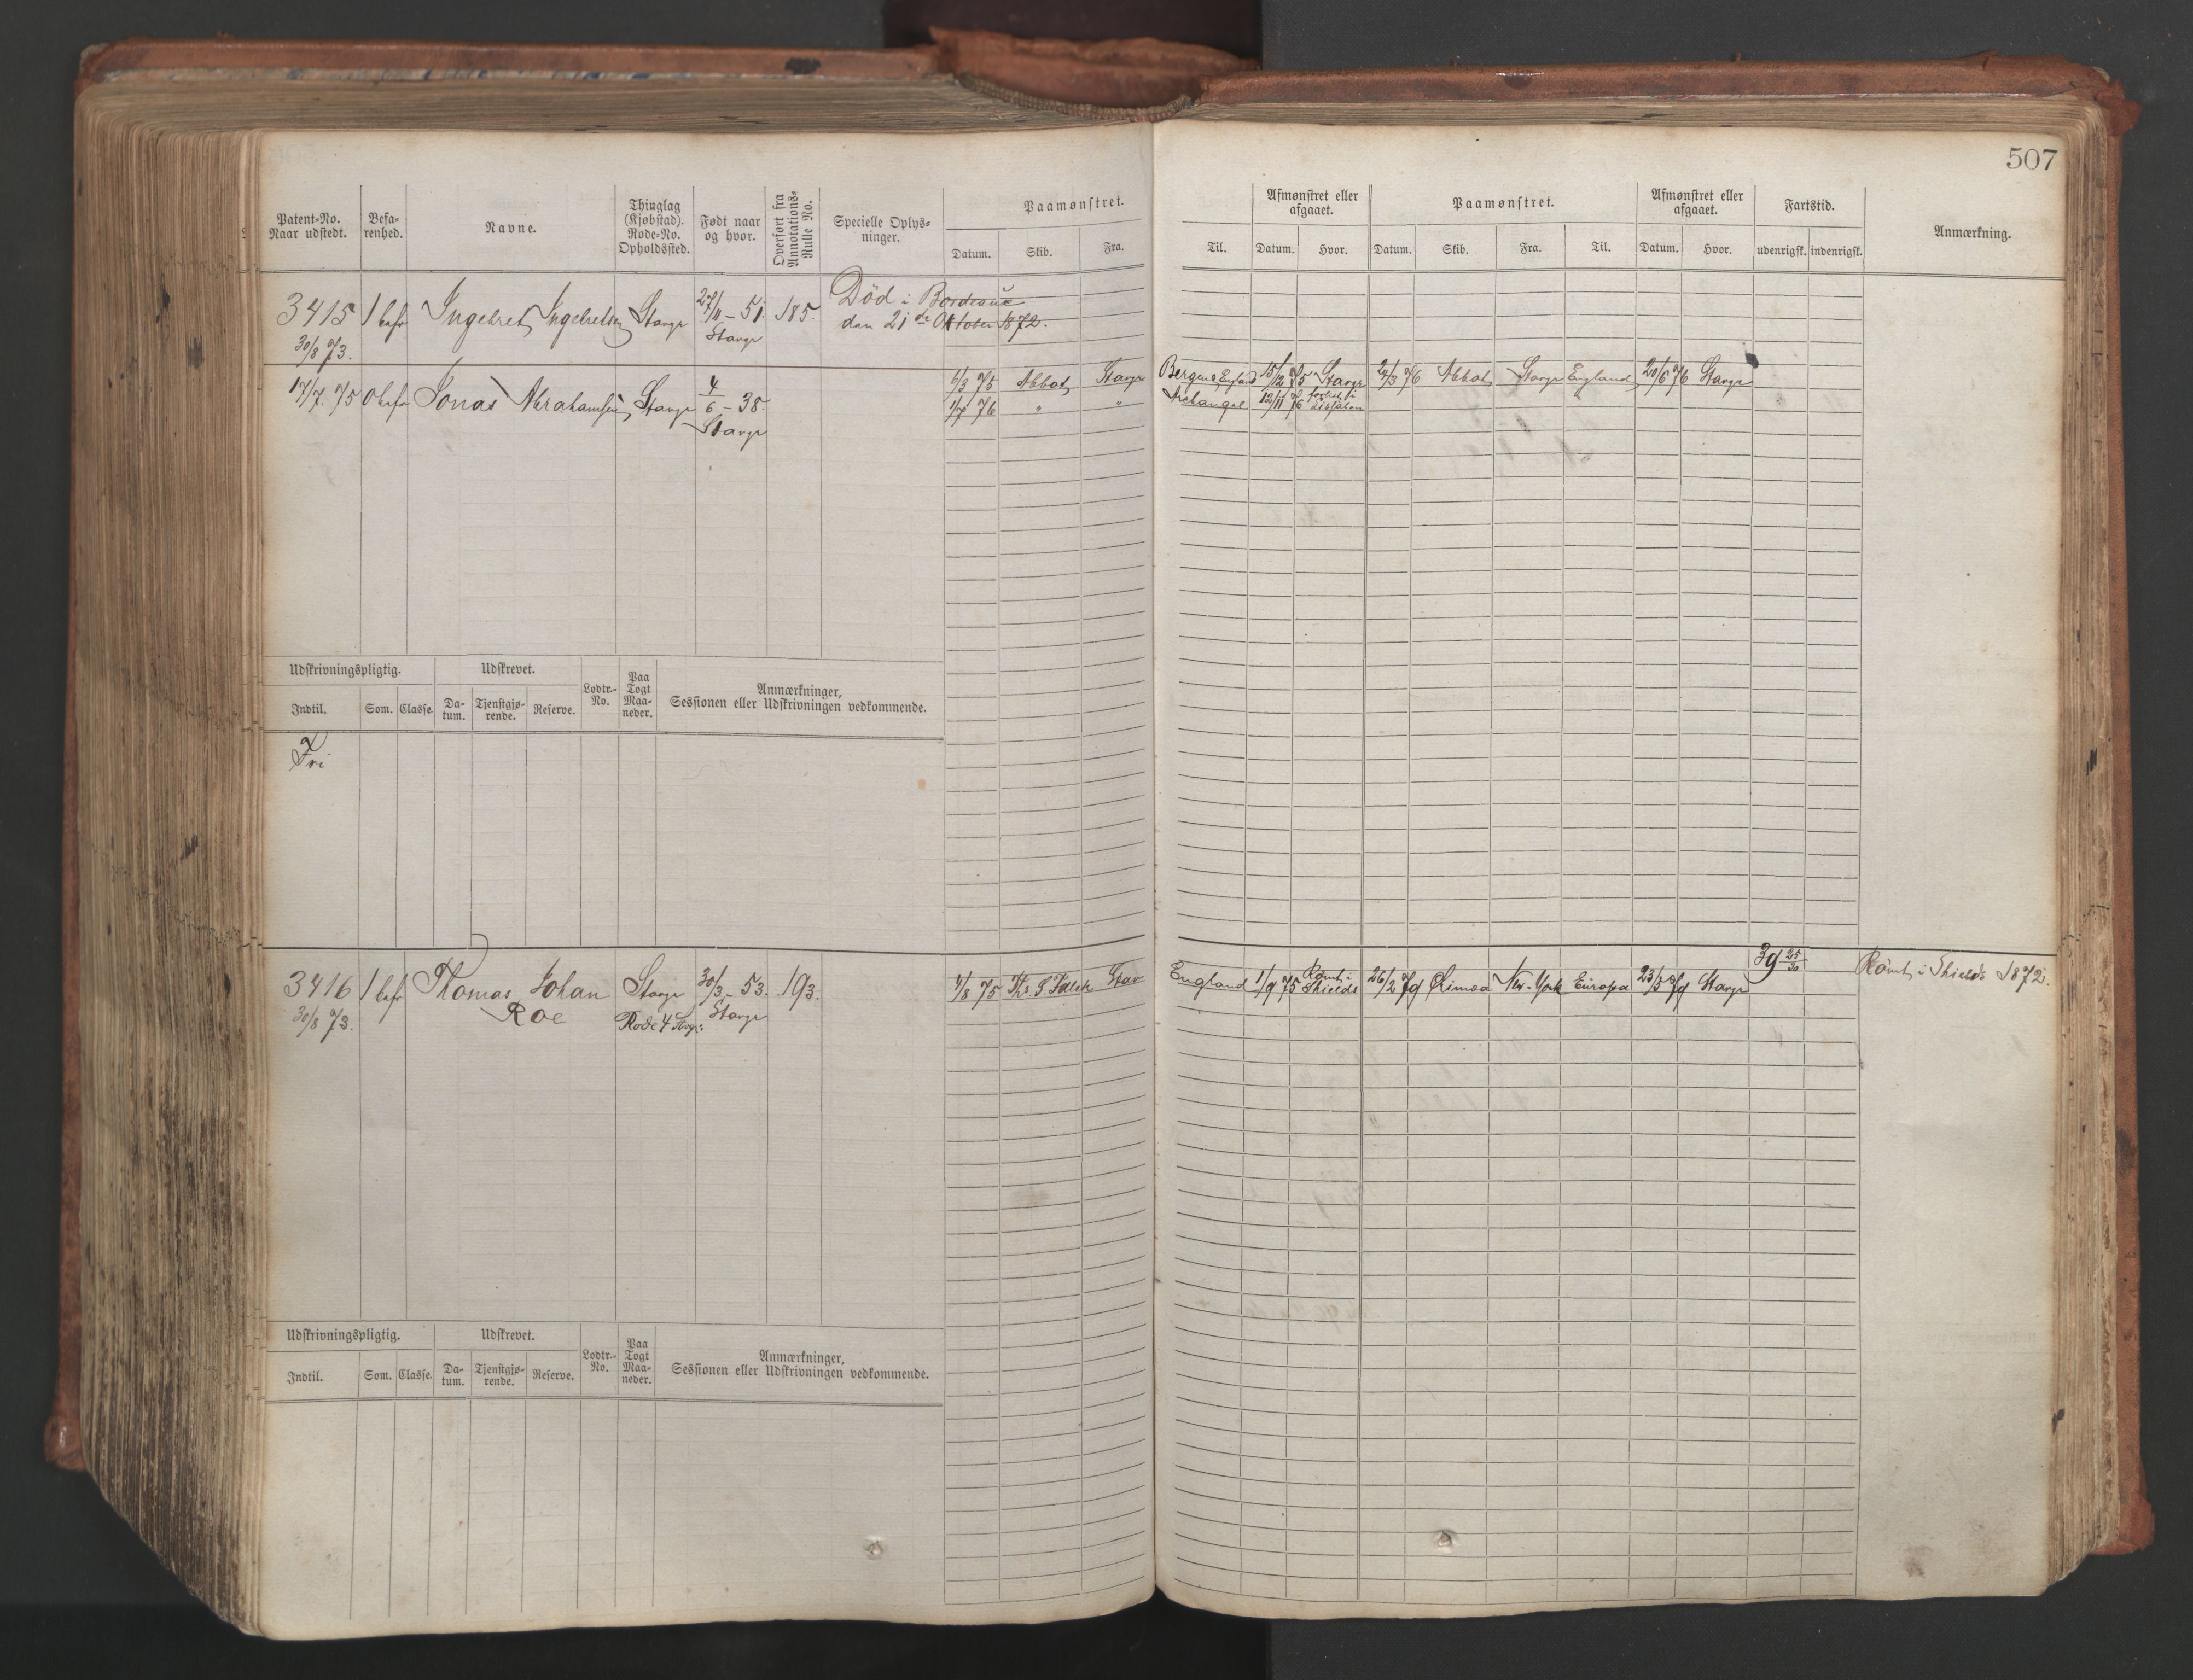 507
Patent-No. Naar udstedt.
Befarenhed.
Navne.
Thinglag (Kjøbstad). Rode-No. Opholdssted.
Født naar og hvor.
Overført fra Annotations-Rulle No.
Specielle Oplysninger.
Paamønstret.
Datum. Skib. Fra. Til.
Afmønstret eller afgaaet.
Datum. Hvor.
Paamønstret.
Datum. Skib. Fra. Til.
Afmønstret eller afgaaet.
Datum. Hvor.
Fartstid.
udenrigsk. indenrigsk.
Anmærkning.
3415 1 bef Ingebret Ingebretsen Stavgr 27/11 - 51. 185. Død i Bordeaux
30/8 73. Stavgr den 21de Oktober 1872.
17/7 75 0 bef Jonas Abrahamsen Stavgr 4/6 - 38. Stavgr
6/3 75 Abbot Stavgr Bergen & England 15/12 75 Stavgr 24/3 76 Abbot Stavgr England 20/6 76 Stavgr
1/7 76 " " Archangel 12/11 76 forlist i
Udskrivningspligtig. Udskrevet. Lodtr.-No. Paa Togt Maaneder. Anmærkninger, Sessionen eller Udskrivningen vedkommende.
Indtil. Som. Classe. Datum. Tjenstgjørende. Reserve.
Fri
3416 1 bef Thomas Johan Stavgr 30/3 - 53. 193.
30/8 73. Roe Rode 4 Stvgr: Stavgr
4/8 75 Th. S. Falck Stav England 1/9 75 Rømt i Shields 26/2 79 Rimoa New-York Europa 23/5 79 Stavgr 39 25/30 Rømt i Shields 1872.
Udskrivningspligtig. Udskrevet. Lodtr.-No. Paa Togt Maaneder. Anmærkninger, Sessionen eller Udskrivningen vedkommende.
Indtil. Som. Classe. Datum. Tjenstgjørende. Reserve.